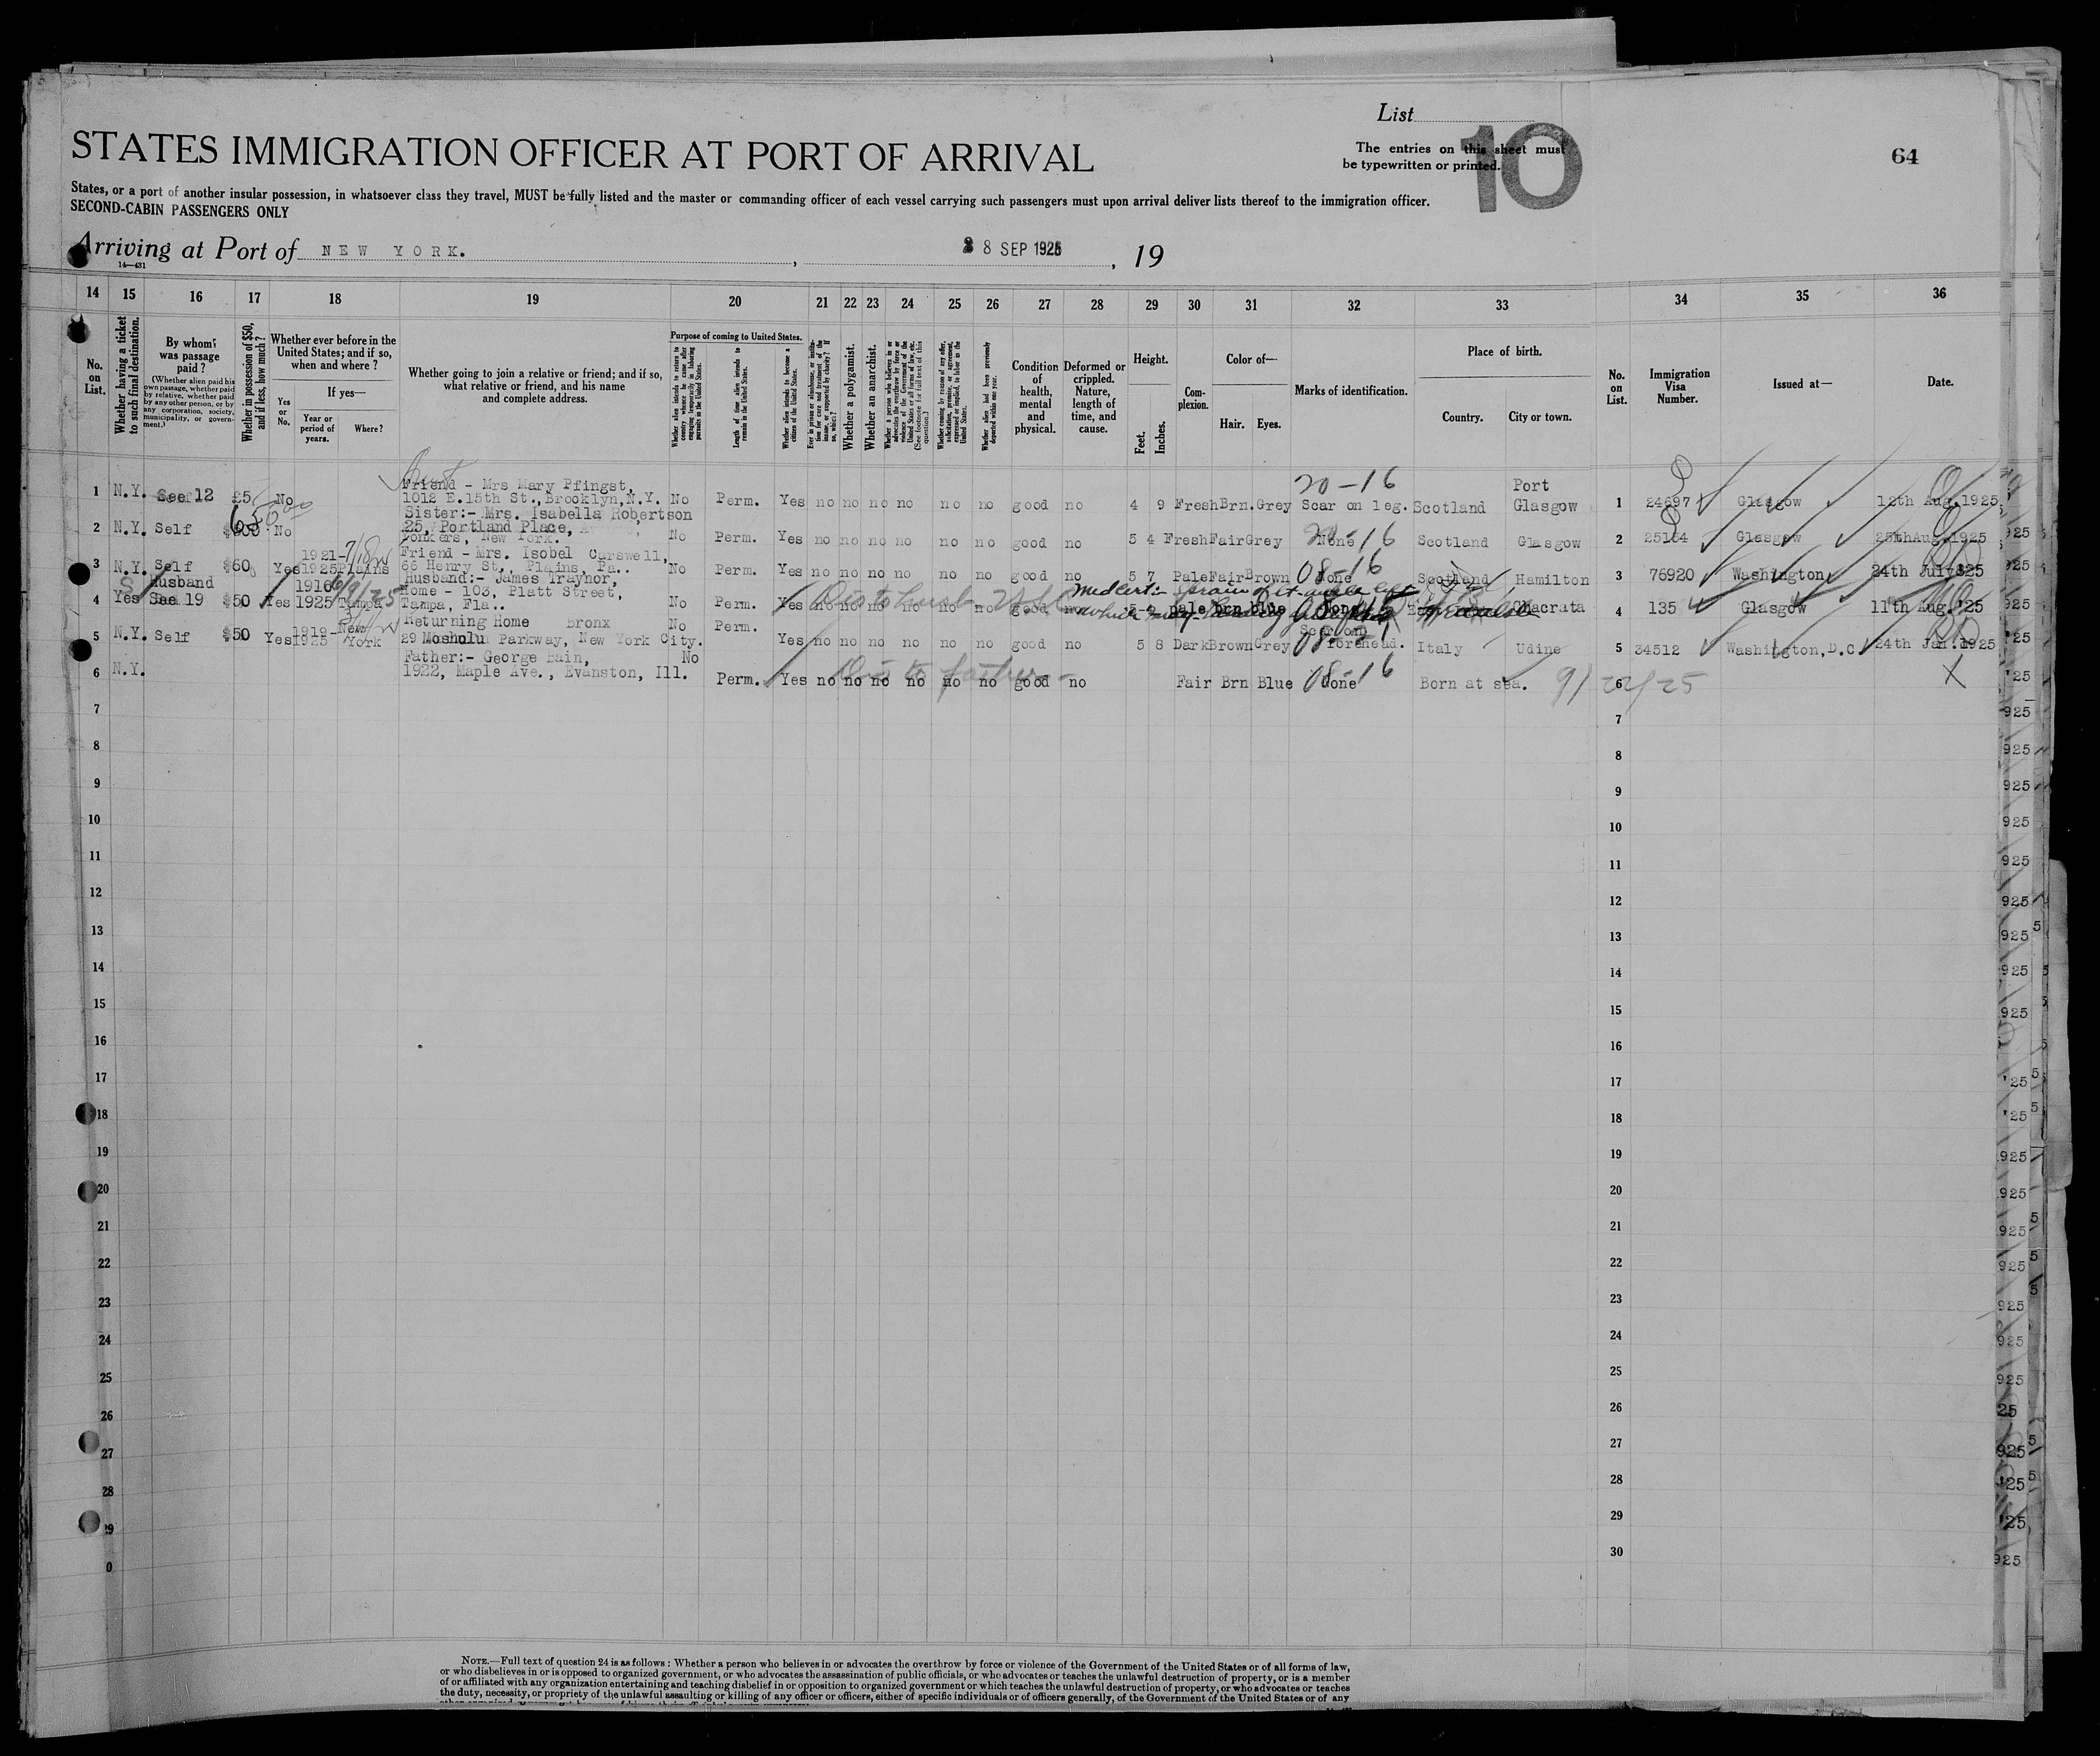 List
STATES IMMIGRATION OFFICER AT PORT OF ARRIVAL
The entries on this sheet must
be typewritten or printed.
10
64
States, or a port of another insular possession, in whatsoever class they travel, MUST be fully listed and the master or commanding officer of each vessel carrying such passengers must upon arrival deliver lists thereof to the immigration officer.
SECOND-CABIN PASSENGERS ONLY
Arriving at Port of NEW YORK. 8 SEP 1925, 19
14—431
14 15 16 17 18 19 20 21 22 23 24 25 26 27 28 29 30 31 32 33 34 35 36
No. on List.
Whether having a ticket to such final destination.
By whom was passage paid?
(Whether alien paid his own passage, whether paid by relative, whether paid by any other person, or by any corporation, society, municipality, or government.)
Whether in possession of $50, and if less, how much?
Whether ever before in the United States; and if so, when and where?
Yes or No.
If yes—
Year or period of years.
Where?
Whether going to join a relative or friend; and if so, what relative or friend, and his name and complete address.
Purpose of coming to United States.
Whether alien intends to return to country whence he came after engaging temporarily in laboring pursuits in the United States.
Length of time alien intends to remain in the United States.
Whether alien intends to become a citizen of the United States.
Whether a polygamist.
Whether an anarchist.
Condition of health, mental and physical.
Deformed or crippled. Nature, length of time, and cause.
Height.
Feet.
Inches.
Complexion.
Color of—
Hair. Eyes.
Marks of identification.
Place of birth.
Country. City or town.
No. on List.
Immigration Visa Number.
Issued at—
Date.
1 N.Y. See 12 £5 No
Friend - Mrs Mary Pfingst,
1012 E.15th St., Brooklyn, N.Y. No Perm. Yes no no no no no no good no 4 9 Fresh Brn. Grey 20-16 Scar on leg. Scotland Port Glasgow 1 24697 Glasgow 12th Aug. 1925
2 N.Y. Self No
Sister:- Mrs. Isabella Robertson
25, Portland Place,
Yonkers, New York. No Perm. Yes no no no no no no good no 5 4 Fresh Fair Grey None Scotland Glasgow 2 25164 Glasgow 25th Aug. 1925
3 N.Y. Self $60 Yes 1921-1925 Plains
Friend - Mrs. Isobel Carswell,
66 Henry St., Plains, Pa.. No Perm. Yes no no no no no no good no 5 7 Pale Fair Brown 08-16 None Scotland Hamilton 3 76920 Washington 24th July 1925
4 Yes Husband See 19 $50 Yes 1916 1925 Tampa
Husband:- James Traynor,
Home - 103, Platt Street,
Tampa, Fla.. No Perm. Yes no no no no no no good no pale brn blue None Chacrata 4 135 Glasgow 11th Aug. '25
5 N.Y. Self $50 Yes 1919-1925 New York
Returning Home Bronx
29 Mosholu Parkway, New York City. No Perm. Yes no no no no no no good no 5 8 Dark Brown Grey Scar on forehead. Italy Udine 5 34512 Washington, D.C. 24th Jan. 1925
6 N.Y.
Father:- George Bain,
1922, Maple Ave., Evanston, Ill. No Perm. Yes no no no no no no good no Fair Brn Blue 08-16 None Born at sea. 6
Dis to father
7 7
8 8
9 9
10 10
11 11
12 12
13 13
14 14
15 15
16 16
17 17
18 18
19 19
20 20
21 21
22 22
23 23
24 24
25 25
26 26
27 27
28 28
29 29
0 30
NOTE.—Full text of question 24 is as follows: Whether a person who believes in or advocates the overthrow by force or violence of the Government of the United States or of all forms of law,
or who disbelieves in or is opposed to organized government, or who advocates the assassination of public officials, or who advocates or teaches the unlawful destruction of property, or is a member
of or affiliated with any organization entertaining and teaching disbelief in or opposition to organized government or which teaches the unlawful destruction of property, or who advocates or teaches
the duty, necessity, or propriety of the unlawful assaulting or killing of any officer or officers, either of specific individuals or of officers generally, of the Government of the United States or of any